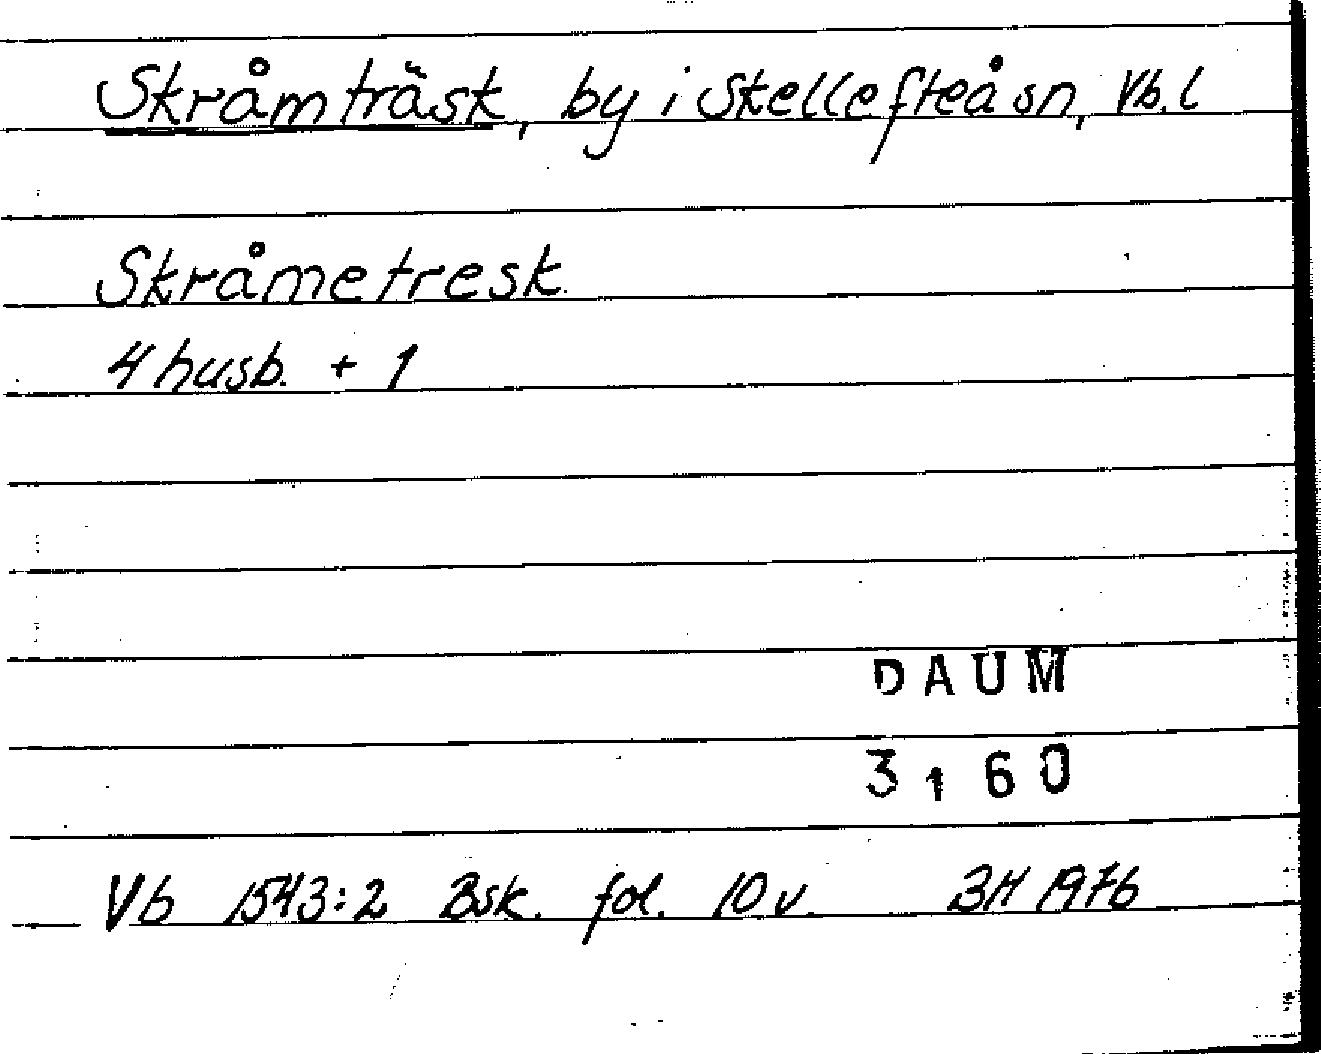 Skråmträsk, by i Skellefteå sn, Vb. l
Skråmetresk.
4 husb. + 1
DAUM
3160
Vb 1543:2 Bsk. fol. 10 v. BH 1976